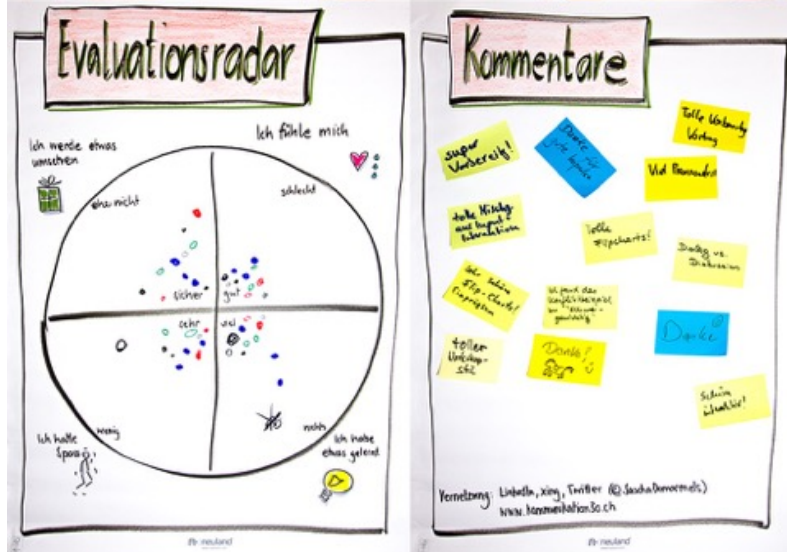 Evaluationsradar
Ich werde etwas
umsetzen
Ich fühle mich
eher nicht
schlecht
sicher
gut
sehr
viel
wenig
nichts
Ich hatte
Spass
Ich habe
etwas gelernt
neuland
Kommentare
super
Vorbereit!
Danke für
gute Inputs
Tolle
Vortrag
Viel
tolle Mischg
aus Input-
Interaktion
tolle
Flipcharts!
Dialog vs.
Diskussion
sehr schöne
Flip-Charts!
Ich fand das
Konfliktbeispiel
toller
Workshop-
stil
Danke!
Danke
Schön
interaktiv!
Vernetzung: LinkedIn, xing, Twitter (@SaschaDemarmels)
www.kommunikation30.ch
neuland